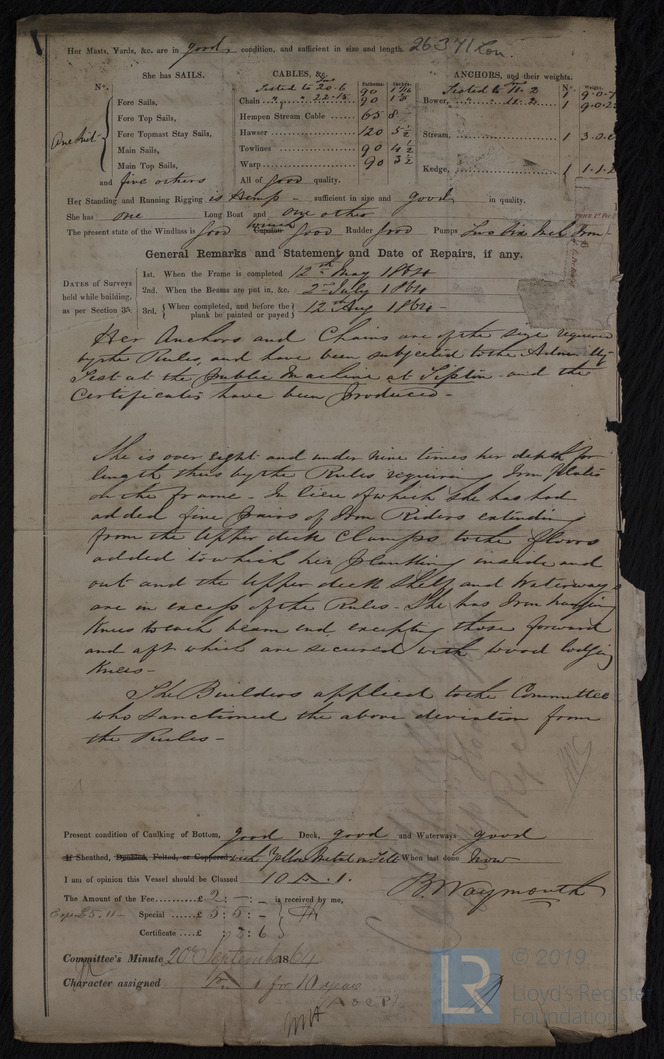 Her Masts, Yards, &c. are in good condition, and sufficient in size and length. 26371 Lon.
She has SAILS. CABLES, &c. Fathoms. Inches. ANCHORS, and their weights.
N°. Tested to 20.6 90 1 7/16 Tested to 11.2 N°. Weight.
Fore Sails, Chain " " 22.15 90 1 Bower, " 11.2 1 9.0.
Fore Top Sails, Hempen Stream Cable 65 8 1 9.0.
One Suit Fore Topmast Stay Sails, Hawser 120 5 1/2 Stream, 1 3.2.
Main Sails, Towlines 90 4 1/2
Main Top Sails, Warp 90 3 1/2 Kedge, 1 1.1.
and five others All of good quality.
Her Standing and Running Rigging is Hemp sufficient in size and good in quality.
She has one Long Boat and one other
The present state of the Windlass is good Capstan Winch good Rudder good Pumps Two Iron
General Remarks and Statement and Date of Repairs, if any.
DATES of Surveys held while building, as per Section 35.
1st. When the Frame is completed 12th May 1864
2nd. When the Beams are put in, &c. 2nd July 1864
3rd. { When completed, and before the plank be painted or payed } 12th Aug 1864 -
Her Anchors and Chains are of the size required
by the Rules, and have been subjected to the Admiralty
Test at the Public Machine at Tipton and the
Certificates have been produced -
She is over eight and under nine times her depth for
length thus by the Rules requiring Iron plates
on the frame - In lieu of which she has had
added five pairs of Iron Riders extending
from the Upper deck Clamps to the floors
added to which her planking inside and
out and the Upper deck Shelf and Waterways
are in excess of the Rules - She has Iron hanging
Knees to each beam end, excepting those forward
and aft which are secured with wood lodging
Knees -
The Builders applied to the Committee
who sanctioned the above deviation from
the Rules -
Present condition of Caulking of Bottom, good Deck, good and Waterways good
If Sheathed, Doubled, Felted, or Coppered with Yellow Metal on Felt When last done Now
I am of opinion this Vessel should be Classed 10 A.1.
The Amount of the Fee £ 2 : - : - is received by me, B. Waymouth
Special £ 5 : 5 : -
Certificate : 7 : 6
Committee's Minute 20th September 1864
Character assigned A 1 for 10 years
A & CP
© 2019
LR
Lloyd's Register
Foundation